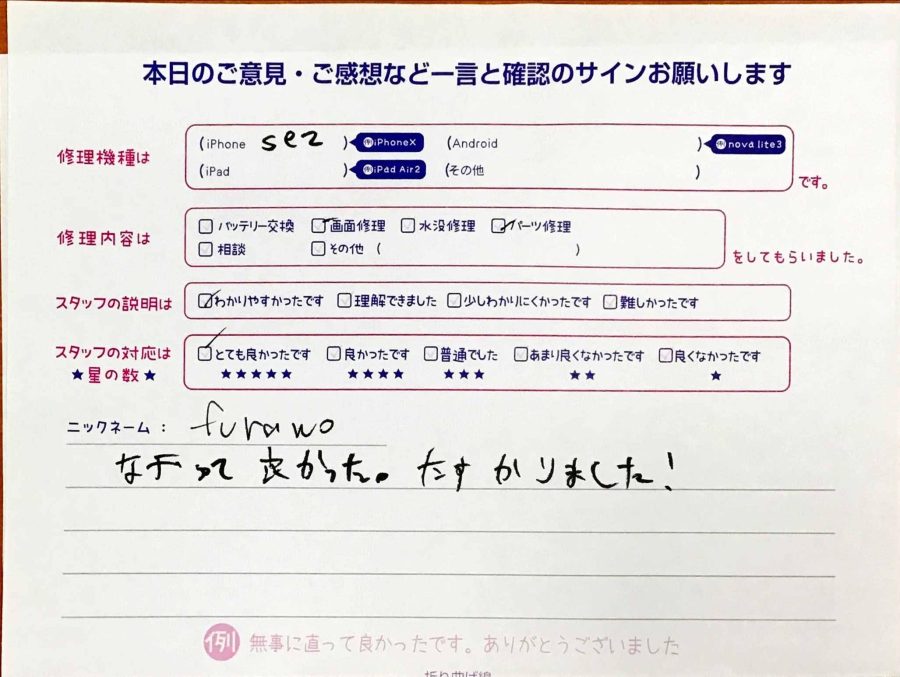 本日のご意見・ご感想など一言と確認のサインお願いします
修理機種は (iPhone se2 ) 例iPhoneX (Android ) 例nova lite3
(iPad ) 例iPad Air2 (その他 ) です。
修理内容は バッテリー交換 画面修理 水没修理 パーツ修理
相談 その他 ( ) をしてもらいました。
スタッフの説明は わかりやすかったです 理解できました 少しわかりにくかったです 難しかったです
スタッフの対応は とても良かったです 良かったです 普通でした あまり良くなかったです 良くなかったです
★星の数★ ★★★★★ ★★★★ ★★★ ★★ ★
ニックネーム: furano
って良かった。たすかりました!
例 無事に直って良かったです。ありがとうございました